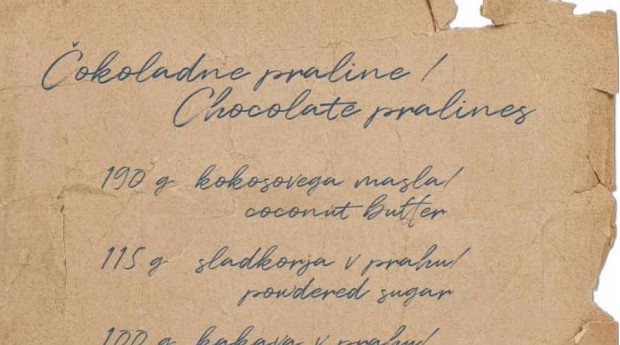 Čokoladne praline /
Chocolate pralines
190 g kokosovega masla/
coconut butter
115 g sladkorja v prahu/
powdered sugar
100 g kakava v prahu/